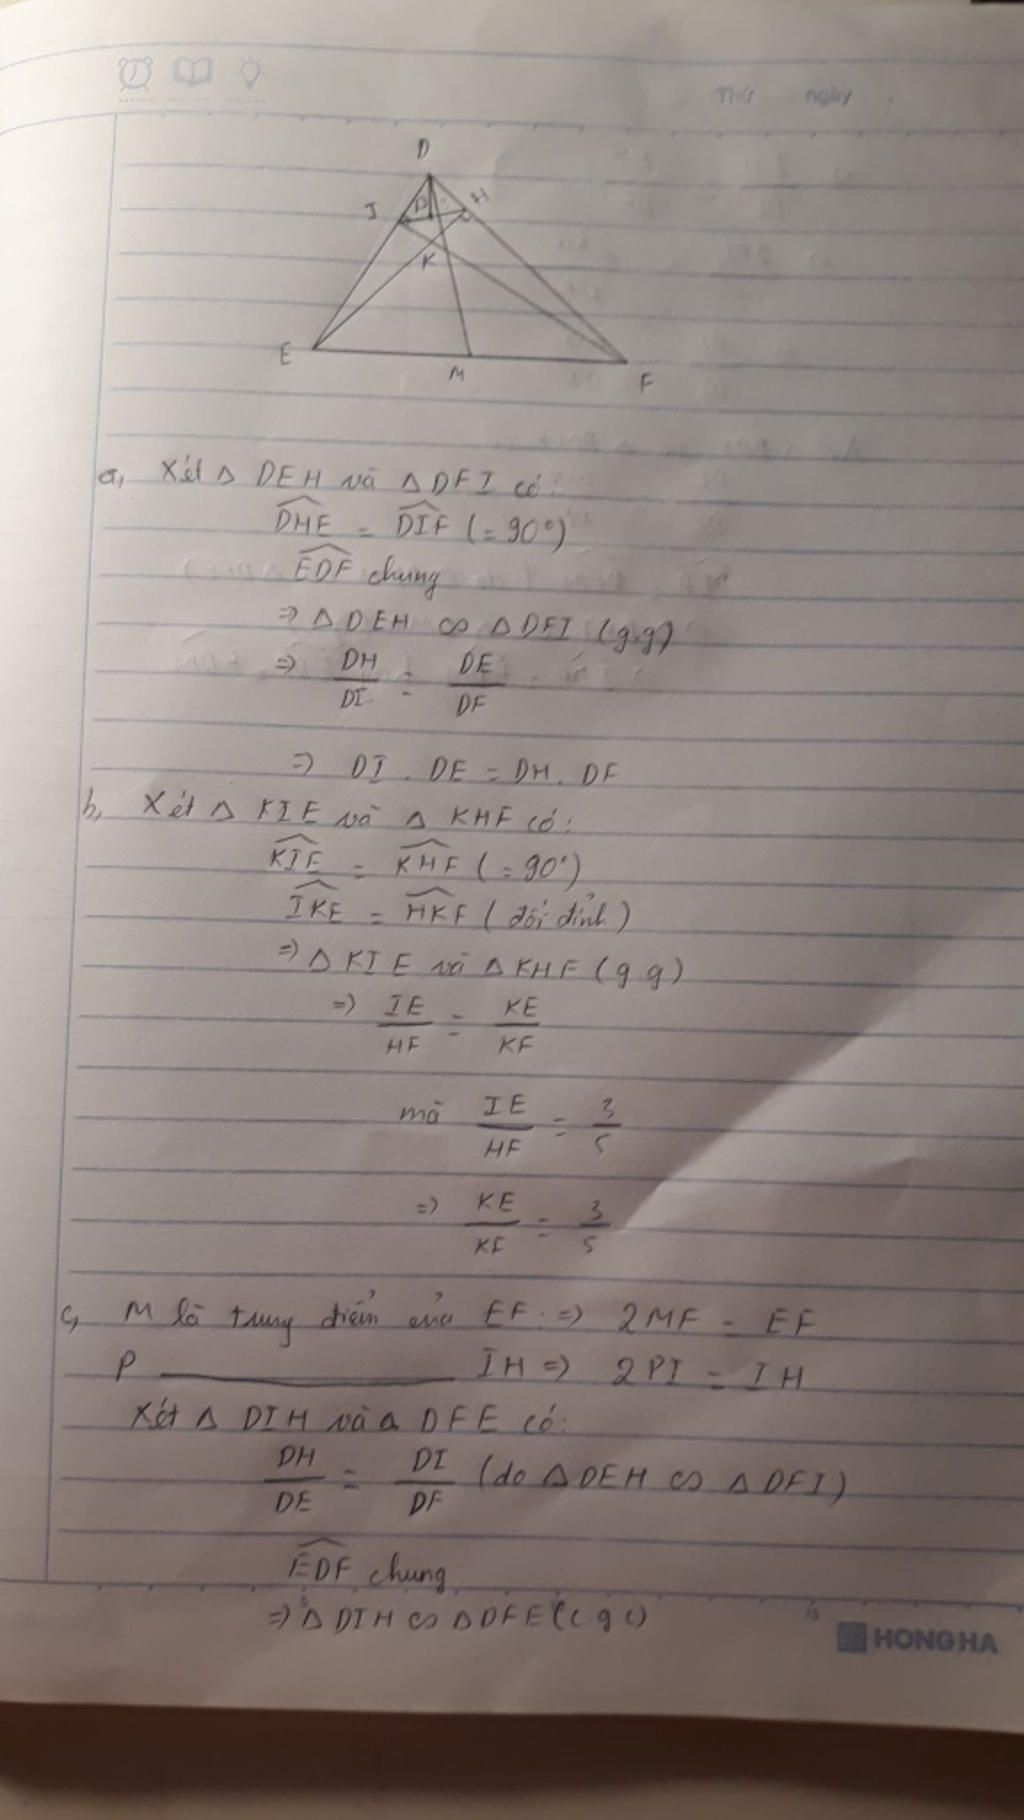 Thứ ngày
D
I P H
K
E M F
a, Xét Δ DEH và Δ DFI có:
DHE = DIF (= 90°)
EDF chung
=> Δ DEH ∽ Δ DFI (g.g)
=> DH/DI = DE/DF
=> DI . DE = DH . DF
b, Xét Δ KIE và Δ KHF có:
KIE = KHF (= 90°)
IKE = HKF (đối đỉnh)
=> Δ KIE và Δ KHF (g.g)
=> IE/HF = KE/KF
mà IE/HF = 3/5
=> KE/KF = 3/5
c, M là trung điểm của EF => 2MF = EF
P ———————— IH => 2PI = IH
Xét Δ DIH và Δ DFE có:
DH/DE = DI/DF (do Δ DEH ∽ Δ DFI)
EDF chung
=> Δ DIH ∽ Δ DFE (c.g.c)
HONG HA